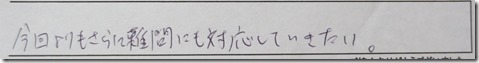 今回よりもさらに難問にも対応していきたい。